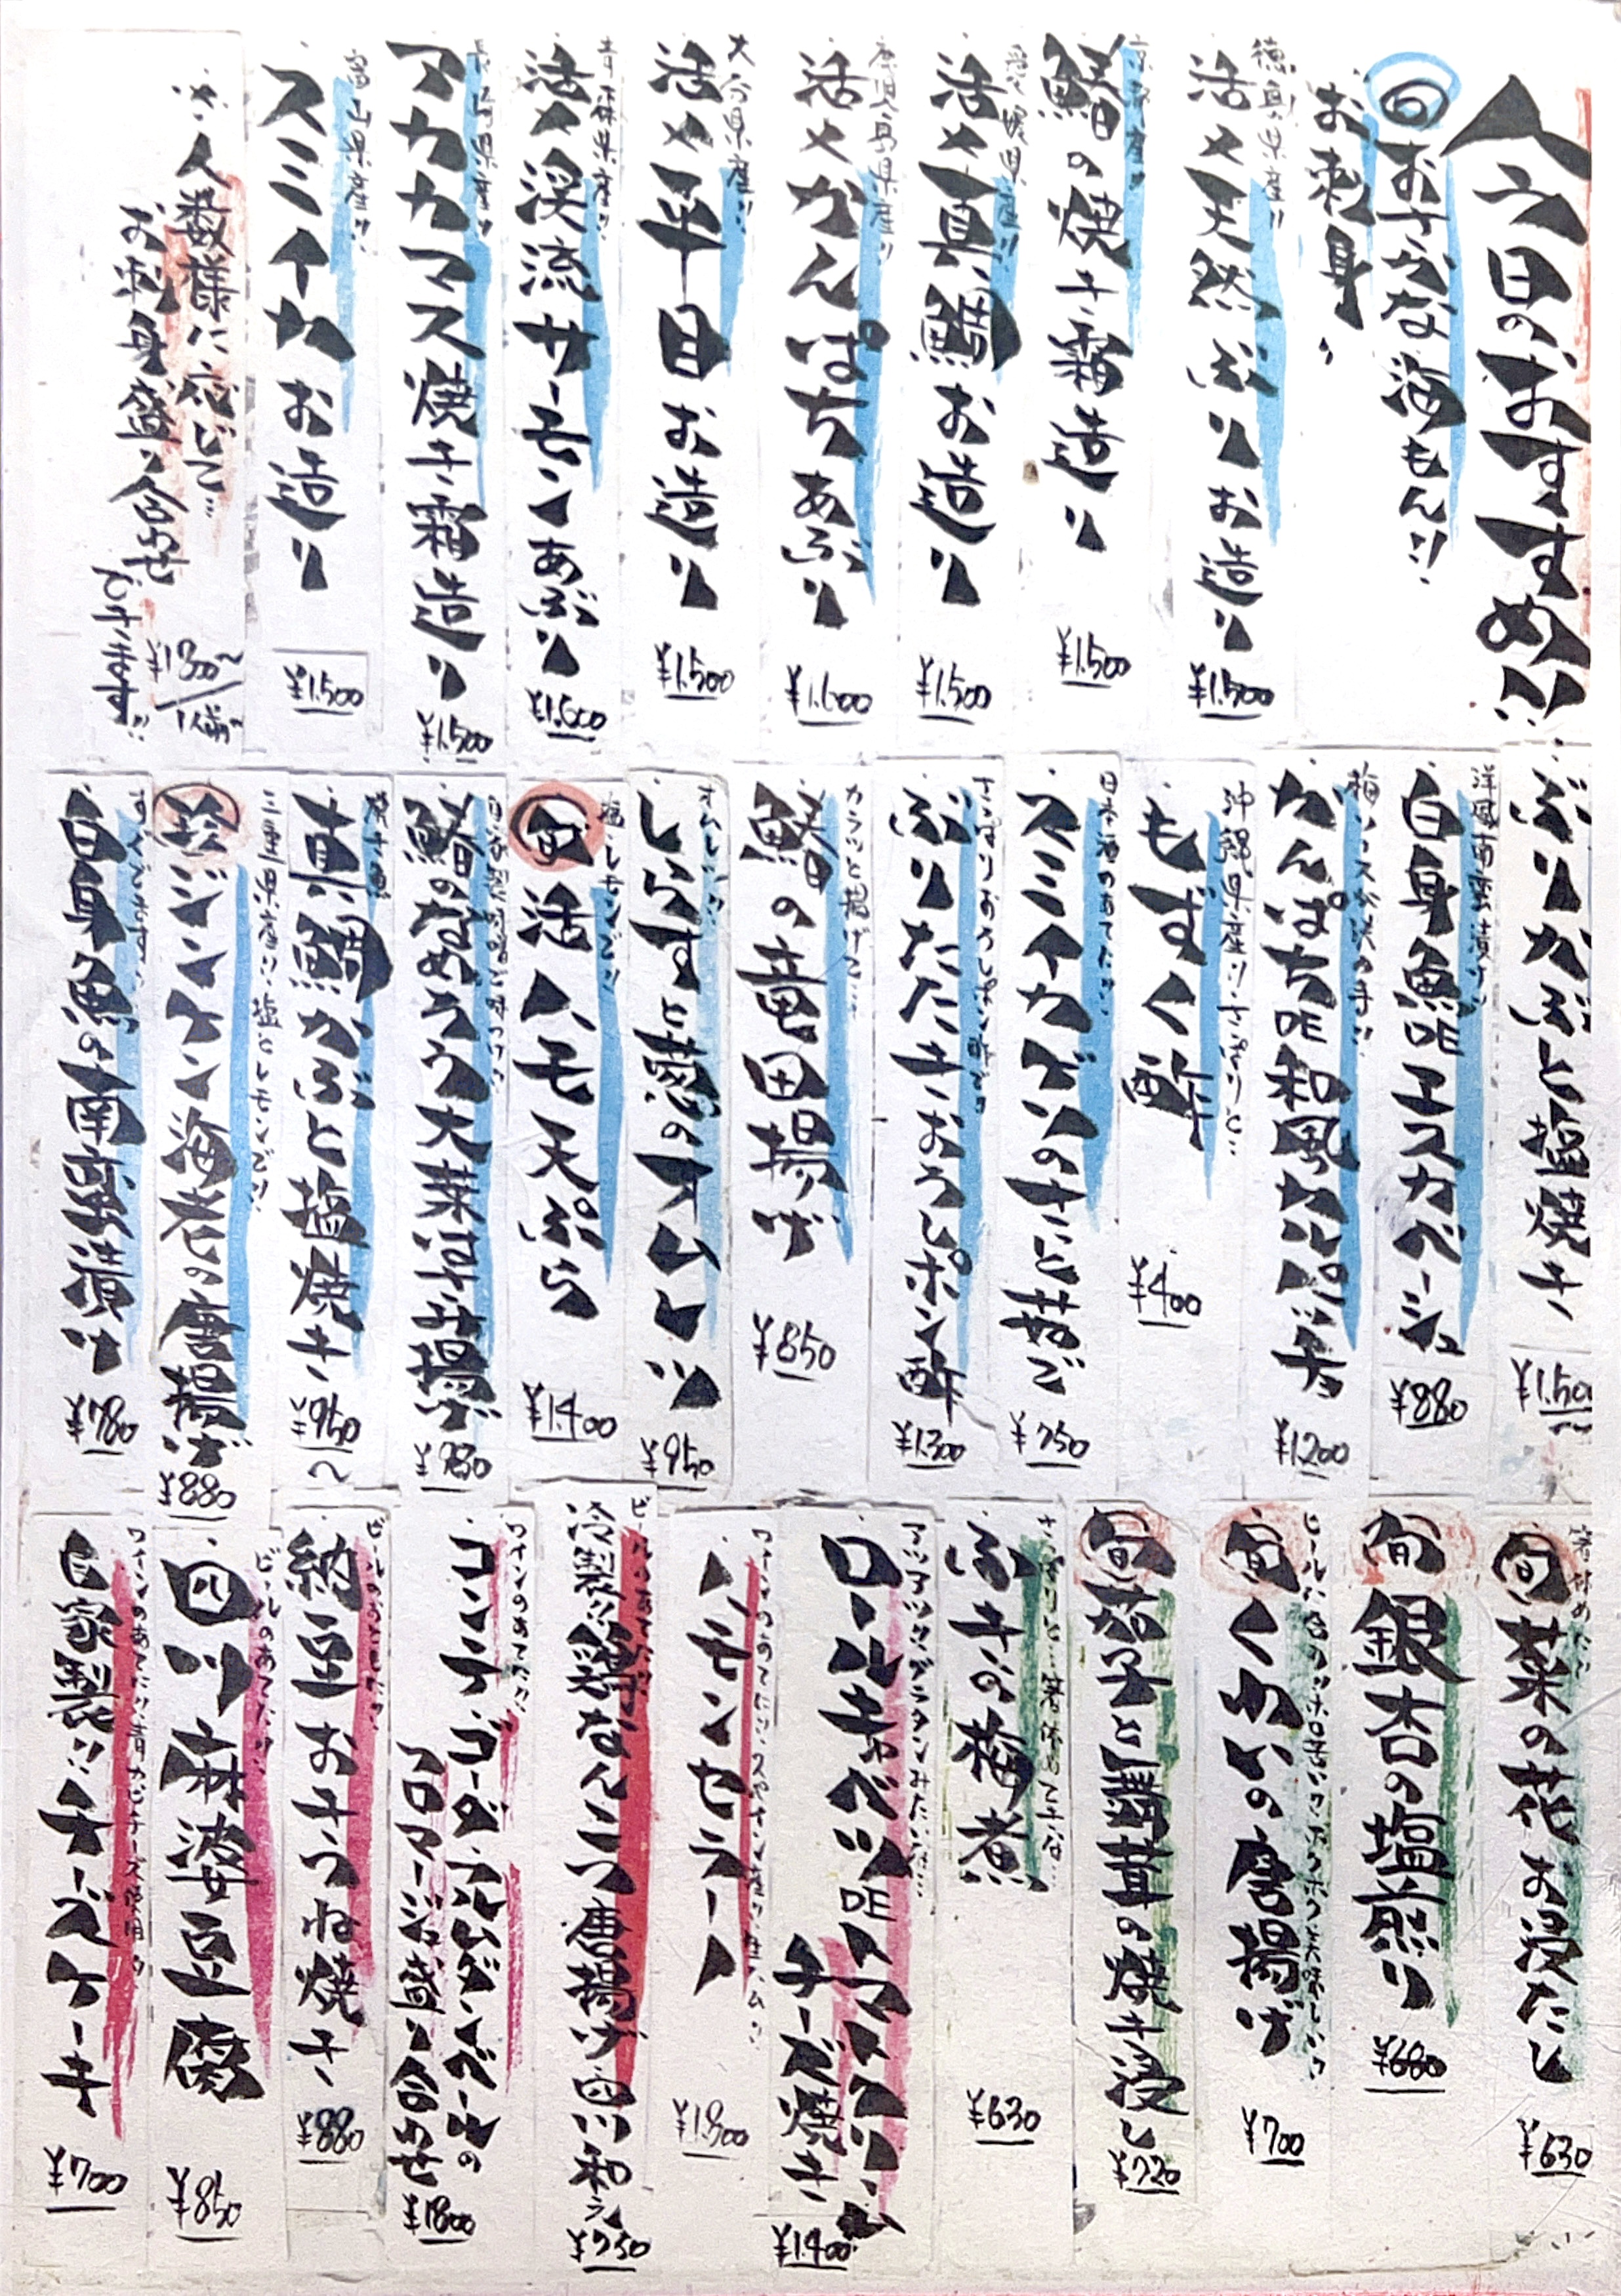 今日のおすすめ!!
旬おさかな海もん!!
お刺身
徳島県産!!
活〆天然ぶりお造り
¥1.500
京都産!!
鰆の焼き霜造り
¥1.500
愛媛県産!!
活〆真鯛お造り
¥1.500
鹿児島県産!!
活〆かんぱちあぶり
¥1.600
大分県産!!
活〆平目お造り
¥1.500
青森県産!!
活〆渓流サーモンあぶり
¥1.500
長崎県産!!
アカカマス焼き霜造り
¥1.500
富山県産!!
スミイカお造り
¥1.500
人数様に応じて…
お刺身盛り合わせ
できます!!
ぶりかぶと塩焼き
¥1.500
洋風南蛮漬け!!
白身魚のエスカベーシュ
¥880
かんぱちの和風カルパッチョ
¥1.200
沖縄県産!!さっぱりと…
もずく酢
¥400
日本酒のあてに!!
スミイカゲソのナニと茹で
¥750
さっぱりおろしポン酢で
ぶりたたきおろしポン酢
¥1.300
カラッと揚げて…
鰆の竜田揚げ
¥850
オムレツ!!
しらすと葱のオムレツ
¥950
塩レモンで!!
旬活ハモ天ぷら
¥1.400
鰆のなめろう大葉はさみ揚げ
焼き魚
真鯛かぶと塩焼き
¥950〜
三重県産!!塩とレモンで!!
珍ジンケン海老の唐揚げ
¥880
白身魚の南蛮漬け
¥780
箸休めに
旬菜の花お浸たし
¥630
旬銀杏の塩煎り
¥680
旬くわいの唐揚げ
¥700
旬茄子と舞茸の焼き浸し
¥720
さっぱりと…箸休めてネ…
ふきの梅煮
¥630
アツアツ!!グラタンみたいな…
ロールキャベツのトマトクリーム
チーズ焼き
¥1.400
ワインのあてに!!スペイン産の生ハム!!
ハモンセラーノ
ビールのあてに!!
冷製!!鶏なんこつ唐揚げ四川和え
¥750
ワインのあてに!!
コンテ、ゴーダ、フルムダンベールの
フロマージュ盛り合わせ
¥1800
ビールのおともに!!
納豆おきつね焼き
¥880
ビールのあてに!!
四川麻婆豆腐
¥850
ワインのあてに!!青カビチーズ使用!!
自家製!!チーズケーキ
¥700